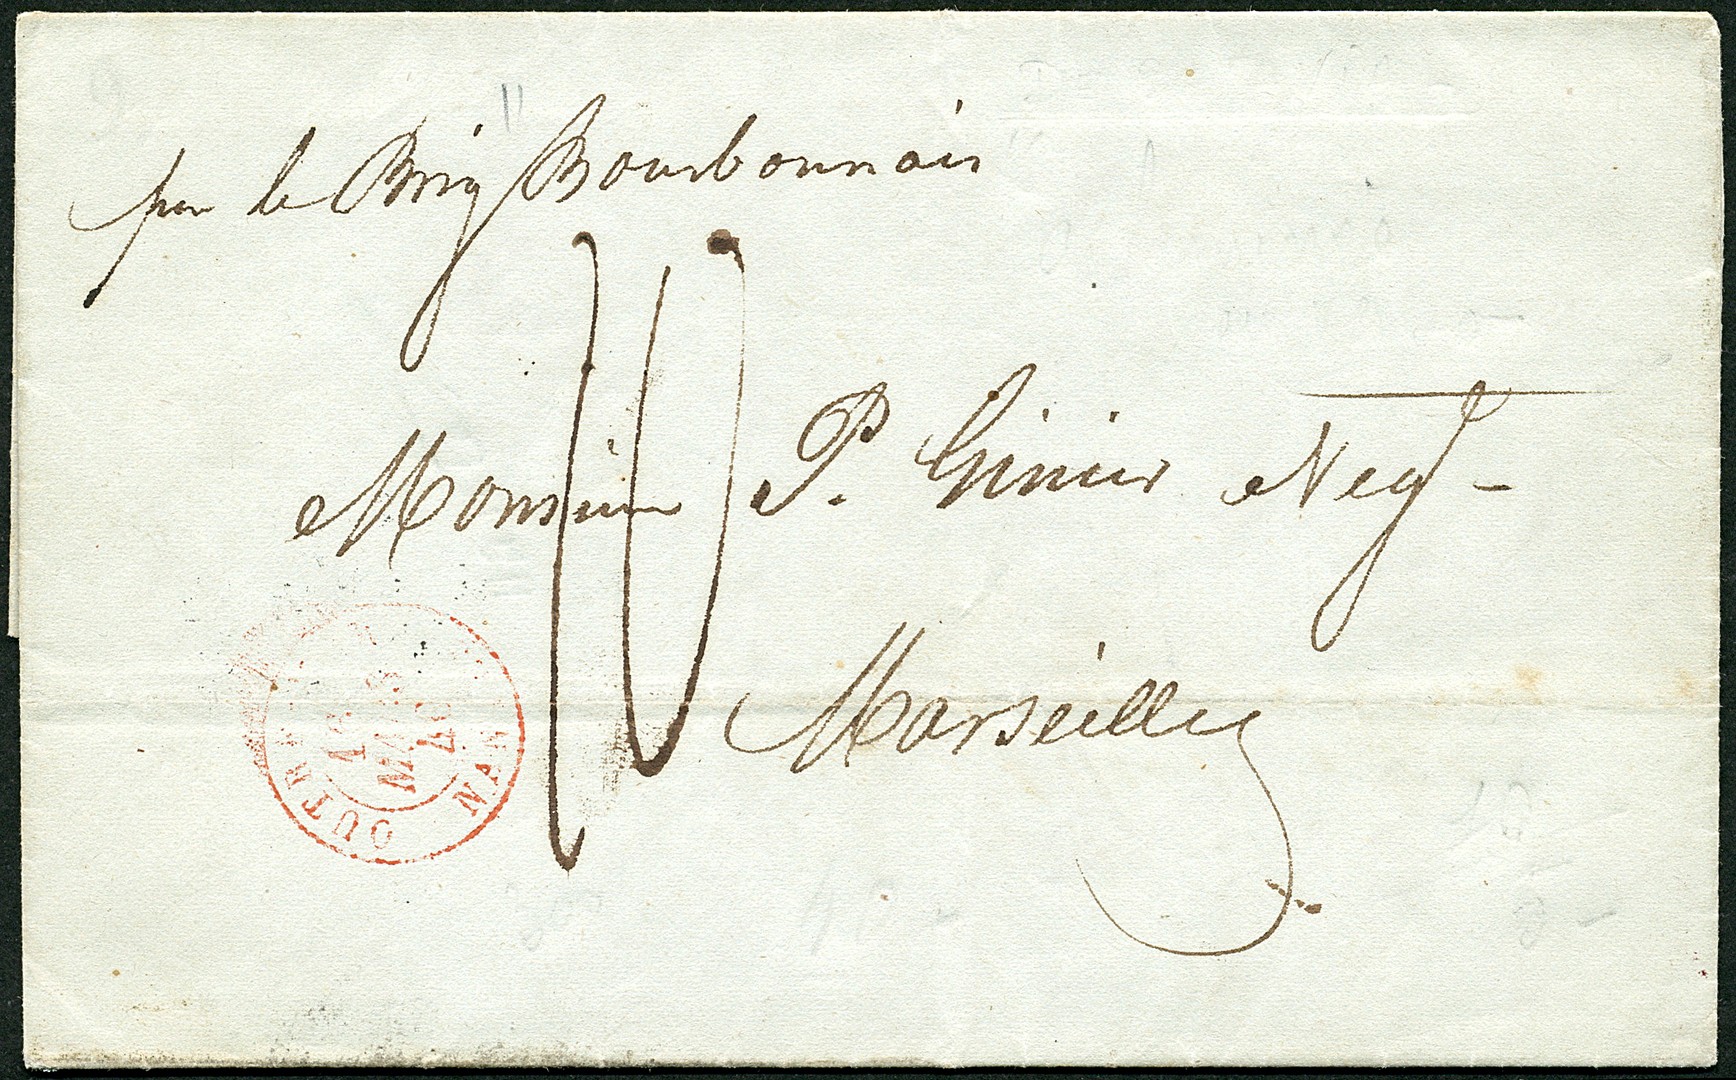 par le Brig Bourbonnais
10
Monsieur P. Ginier Negt -
Marseille
OUTRE
13
MARS
40
NAN